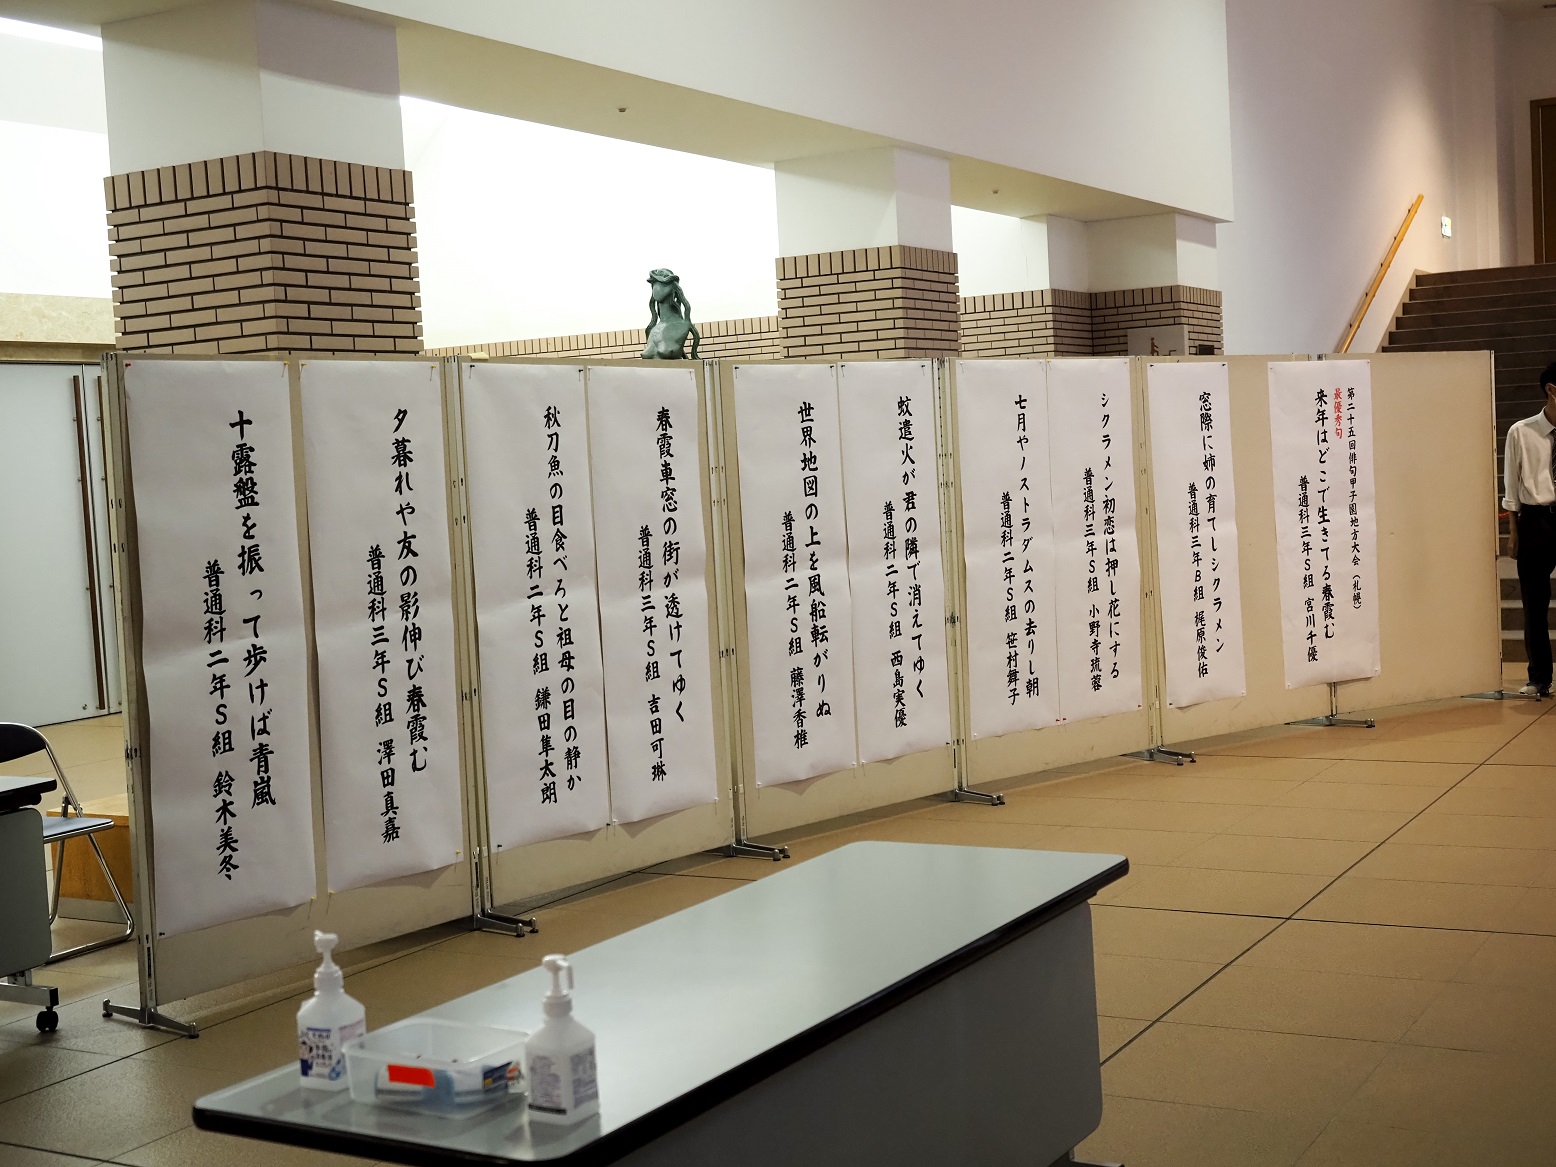 第二十五回俳句甲子園地方大会(札幌)
最優秀句
来年はどこで生きてる春霞む
普通科三年S組 宮川千優
窓際に姉の育てしシクラメン
普通科三年B組 梶原俊佑
シクラメン初恋は押し花にする
普通科三年S組 小野寺琉蓉
七月やノストラダムスの去りし朝
普通科二年S組 笹村舞子
蚊遣火が君の隣で消えてゆく
普通科二年S組 西島実優
世界地図の上を風船転がりぬ
普通科二年S組 藤澤香椎
春霞車窓の街が透けてゆく
普通科三年S組 吉田可琳
秋刀魚の目食べろと祖母の目の静か
普通科二年S組 鎌田隼太朗
夕暮れや友の影伸び春霞む
普通科三年S組 澤田真嘉
十露盤を振って歩けば青嵐
普通科二年S組 鈴木美冬